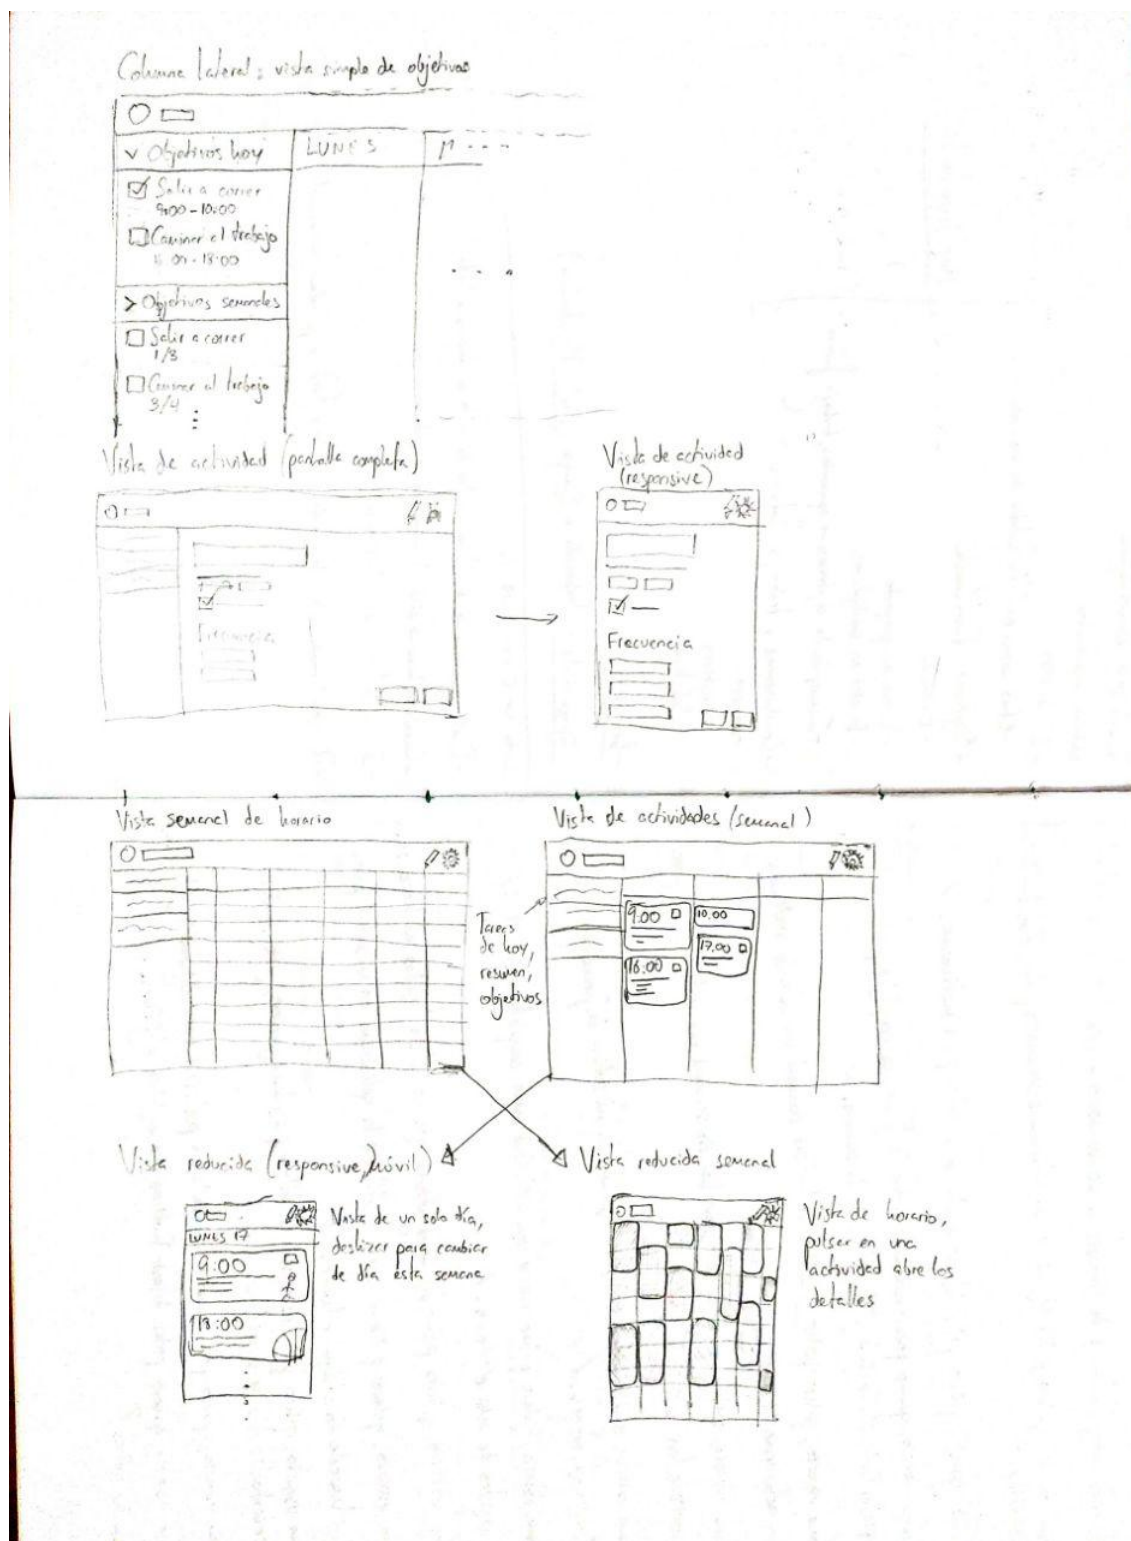 Columna lateral: vista simple de objetivos
Objetivos hoy
LUNES
Salir a correr
9:00 - 10:00
Caminar al trabajo
- 18:00
Objetivos semanales
Salir a correr
1/3
Caminar al trabajo
3/4
Vista de actividad (pantalla completa)
Frecuencia
Vista de actividad
(responsive)
Frecuencia
Vista semanal de horario
Vista de actividades (semanal)
9:00
10.00
17.00
16:00
Tareas
de hoy,
resumen,
objetivos
Vista reducida (responsive, móvil)
LUNES 17
9:00
18:00
Vista de un solo día,
deslizar para cambiar
de día esta semana
Vista reducida semanal
Vista de horario,
pulsar en una
actividad abre los
detalles